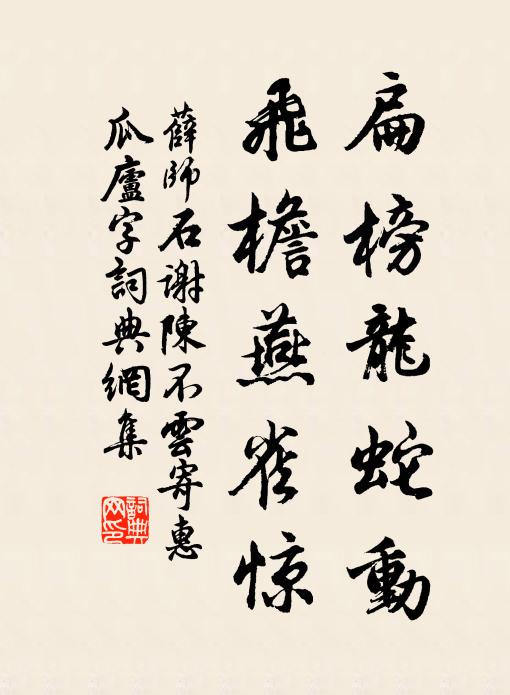 扁榜龍蛇動
飛檐燕雀惊
薛師石谢陳不雲寄惠
瓜廬字詞典網集
詞典
网印